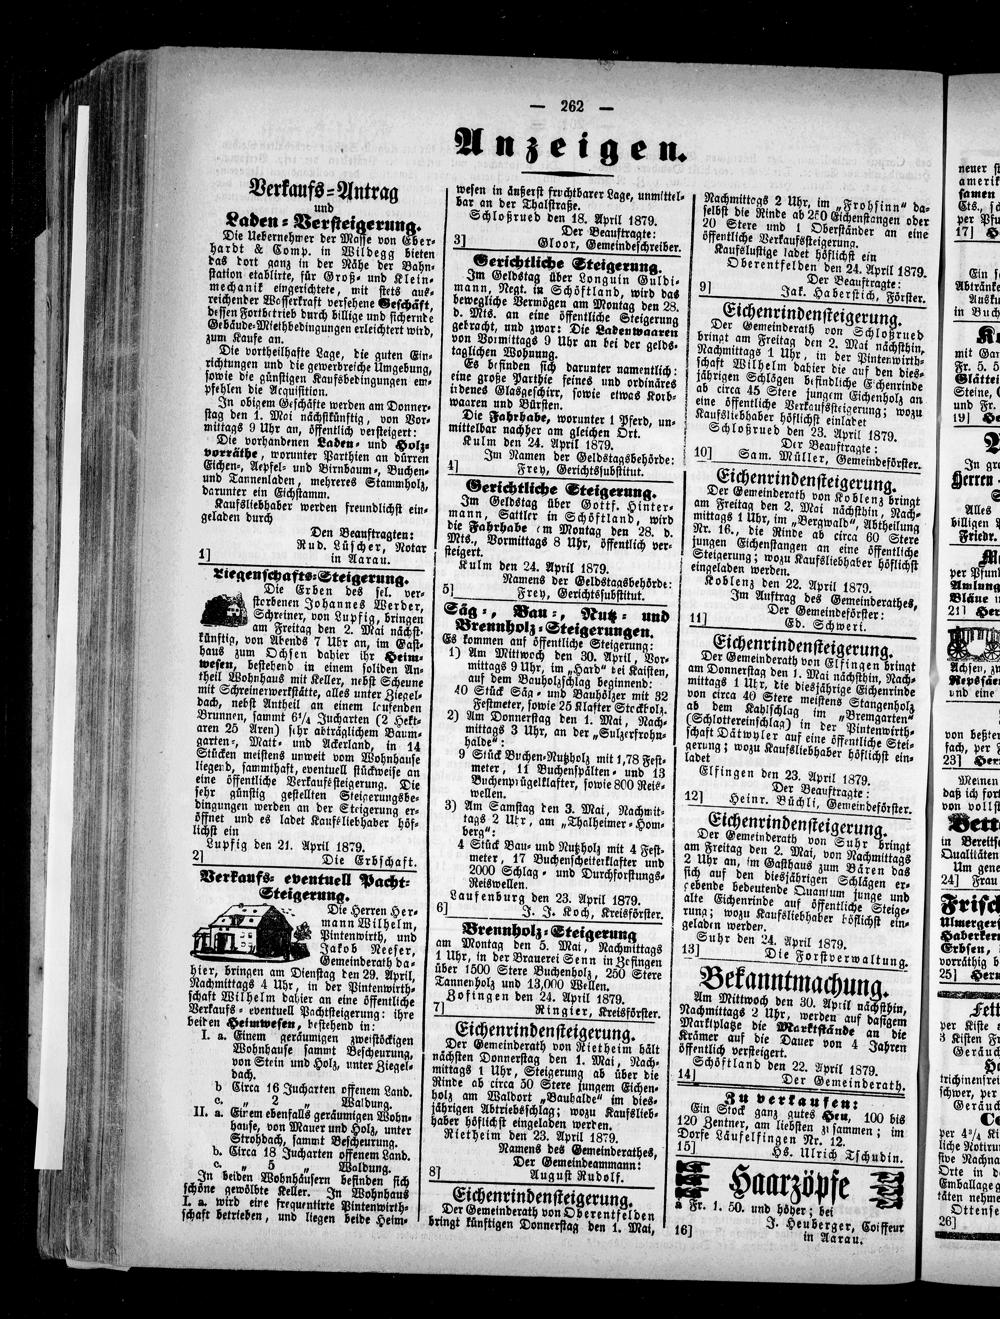 — 262 —
Anzeigen.
Verkaufs-Antrag
und
Laden-Versteigerung.
Die Uebernehmer der Masse von Eber-
hardt & Comp. in Wildegg bieten
das dort ganz in der Nähe der Bahn-
station etablirte, für Groß- und Klein-
mechanik eingerichtete, mit stets aus-
reichender Wasserkraft versehene Geschäft,
dessen Fortbetrieb durch billige und sichernde
Gebäude-Miethbedingungen erleichtert wird,
zum Kaufe an.
Die vortheilhafte Lage, die guten Ein-
richtungen und die gewerbreiche Umgebung,
sowie die günstigen Kaufsbedingungen em-
pfehlen die Acquisition.
In obigem Geschäfte werden am Donner-
stag den 1. Mai nächstkünftig, von Vor-
mittags 9 Uhr an, öffentlich versteigert:
Die vorhandenen Laden- und Holz-
vorräthe, worunter Parthien an dürren
Eichen-, Aepfel- und Birnbaum-, Buchen-
und Tannenladen, mehreres Stammholz,
darunter ein Eichstamm.
Kaufsliebhaber werden freundlichst ein-
geladen durch
Den Beauftragten:
Rud. Lüscher, Notar
1] in Aarau.
Liegenschafts-Steigerung.
Die Erben des sel. ver-
storbenen Johannes Werder,
Schreiner, von Lupfig, bringen
am Freitag den 2. Mai nächst-
künftig, von Abends 7 Uhr an, im Gast-
haus zum Ochsen dahier ihr Heim-
wesen, bestehend in einem soliden An-
theil Wohnhaus mit Keller, nebst Scheune
mit Schreinerwerkstätte, alles unter Ziegel-
dach, nebst Antheil an einem laufenden
Brunnen, sammt 6¼ Jucharten (2 Hekt-
aren 25 Aren) sehr abträglichem Baum-
garten-, Matt- und Ackerland, in 14
Stücken meistens unweit vom Wohnhause
liegend, sammthaft, eventuell stückweise an
eine öffentliche Verkaufssteigerung. Die
sehr günstig gestellten Steigerungsbe-
dingungen werden an der Steigerung er-
öffnet und es ladet Kaufsliebhaber höf-
lichst ein
Lupfig den 21. April 1879.
2] Die Erbschaft.
Verkaufs- eventuell Pacht-
Steigerung.
Die Herren Her-
mann Wilhelm,
Pintenwirth, und
Jakob Neeser,
Gemeinderath da-
hier, bringen am Dienstag den 29. April,
Nachmittags 4 Uhr, in der Pintenwirth-
schaft Wilhelm dahier an eine öffentliche
Verkaufs- eventuell Pachtsteigerung: ihre
beiden Heimwesen, bestehend in:
I. a. Einem geräumigen zweistöckigen
Wohnhause sammt Bescheurung,
von Stein und Holz, unter Ziegel-
dach.
b Circa 16 Jucharten offenem Land.
c. „ 2 „ Waldung.
II. a. Einem ebenfalls geräumigen Wohn-
hause, von Mauer und Holz, unter
Strohdach, sammt Bescheurung.
b. Circa 18 Jucharten offenem Land.
c. „ 5 „ Waldung.
In beiden Wohnhäusern befinden sich
schöne gewölbte Keller. In Wohnhaus
I. a. wird eine frequentirte Pintenwirth-
schaft betrieben, und liegen beide Heim-
wesen in äußerst fruchtbarer Lage, unmittel-
bar an der Thalstraße.
Schloßrued den 18. April 1879.
Der Beauftragte:
3] Gloor, Gemeindeschreiber.
Gerichtliche Steigerung.
Im Geldstag über Longuin Guldi-
mann, Negt. in Schöftland, wird das
bewegliche Vermögen am Montag den 28.
d. Mts. an eine öffentliche Steigerung
gebracht, und zwar: Die Ladenwaaren
von Vormittags 9 Uhr an bei der gelds-
taglichen Wohnung.
Es befinden sich darunter namentlich:
eine große Parthie feines und ordinäres
irdenes Glasgeschirr, sowie etwas Korb-
waaren und Bürsten.
Die Fahrhabe, worunter 1 Pferd, un-
mittelbar nachher am gleichen Ort.
Kulm den 24. April 1879.
Im Namen der Geldstagsbehörde:
4] Frey, Gerichtssubstitut.
Gerichtliche Steigerung.
Im Geldstag über Gottf. Hinter-
mann, Sattler in Schöftland, wird
die Fahrhabe am Montag den 28. d.
Mts., Vormittags 8 Uhr, öffentlich ver-
steigert.
Kulm den 24. April 1879.
Namens der Geldstagsbehörde:
5] Frey, Gerichtssubstitut.
Säg-, Bau-, Nutz- und
Brennholz-Steigerungen.
Es kommen auf öffentliche Steigerung:
1) Am Mittwoch den 30. April, Vor-
mittags 9 Uhr, im „Hard" bei Kaisten,
auf dem Bauholzschlag beginnend:
40 Stück Säg- und Bauhölzer mit 32
Festmeter, sowie 25 Klafter Stockholz.
2) Am Donnerstag den 1. Mai, Nach-
mittags 3 Uhr, an der „Sulzerfrohn-
halde":
9 Stück Buchen-Nutzholz mit 1,78 Fest-
meter, 11 Buchenspälten- und 13
Buchenprügelklafter, sowie 800 Reis-
wellen.
3) Am Samstag den 3. Mai, Nachmit-
tags 2 Uhr, am „Thalheimer-Hom-
berg":
4 Stück Bau- und Nutzholz mit 4 Fest-
meter, 17 Buchenscheiterklafter und
2000 Schlag- und Durchforstungs-
Reiswellen.
Laufenburg den 23. April 1879.
6] J. J. Koch, Kreisförster.
Brennholz-Steigerung
am Montag den 5. Mai, Nachmittags
1 Uhr, in der Brauerei Senn in Zofingen
über 1500 Stere Buchenholz, 250 Stere
Tannenholz und 13,000 Wellen.
Zofingen den 24. April 1879.
7] Ringier, Kreisförster.
Eichenrindensteigerung.
Der Gemeinderath von Rietheim hält
nächsten Donnerstag den 1. Mai, Nach-
mittags 1 Uhr, Steigerung ab über die
Rinde ab circa 50 Stere jungem Eichen-
holz am Waldort „Bauhalde" im dies-
jährigen Abtriebschlag; wozu Kaufslieb-
haber höflichst eingeladen werden.
Rietheim den 23. April 1879.
Namens des Gemeinderathes,
Der Gemeindeammann:
8] August Rudolf.
Eichenrindensteigerung,
Der Gemeinderath von Oberentfelden
bringt künftigen Donnerstag den 1. Mai,
Nachmittags 2 Uhr, im „Frohsinn" da-
selbst die Rinde ab 250 Eichenstangen oder
20 Stere und 1 Oberständer an eine
öffentliche Verkaufssteigerung.
Kaufslustige ladet höflichst ein
Oberentfelden den 24. April 1879.
Der Beauftragte:
9] Jak. Haberstich, Förster.
Eichenrindensteigerung.
Der Gemeinderath von Schloßrued
bringt am Freitag den 2. Mai nächsthin,
Nachmittags 1 Uhr, in der Pintenwirth-
schaft Wilhelm dahier die auf den dies-
jährigen Schlägen befindliche Eichenrinde
ab circa 45 Stere jungem Eichenholz an
eine öffentliche Verkaufssteigerung; wozu
Kaufsliebhaber höflichst einladet
Schloßrued den 23. April 1879.
Der Beauftragte:
10] Sam. Müller, Gemeindeförster.
Eichenrindensteigerung.
Der Gemeinderath von Koblenz bringt
am Freitag den 2. Mai nächsthin, Nach-
mittags 1 Uhr, im „Bergwald", Abtheilung
Nr. 16., die Rinde ab circa 60 Stere
jungen Eichenstangen an eine öffentliche
Steigerung; wozu Kaufsliebhaber höflichst
eingeladen werden.
Koblenz den 22. April 1879.
Im Auftrag des Gemeinderathes,
Der Gemeindeförster:
11] Ed. Schweri.
Eichenrindensteigerung.
Der Gemeinderath von Elfingen bringt
am Donnerstag den 1. Mai nächsthin, Nach-
mittags 1 Uhr, die diesjährige Eichenrinde
von circa 40 Stere meistens Stangenholz
ab dem Kahlschlag im „Bremgarten"
(Schlottereinschlag) in der Pintenwirth-
schaft Dätwyler auf eine öffentliche Stei-
gerung; wozu Kaufsliebhaber höflichst ein-
ladet
Elfingen den 23. April 1879.
Der Beauftragte:
12] Heinr. Büchli, Gemeindeförster.
Eichenrindensteigerung.
Der Gemeinderath von Suhr bringt
am Freitag den 2. Mai, von Nachmittags
2 Uhr an, im Gasthaus zum Bären das
sich auf den diesjährigen Schlägen er-
gebende bedeutende Quantum junge und
alte Eichenrinde auf öffentliche Steige-
rung; wozu Kaufsliebhaber höflichst ein-
geladen werden.
Suhr den 24. April 1879.
13] Die Forstverwaltung.
Bekanntmachung.
Am Mittwoch den 30. April nächsthin,
Nachmittags 2 Uhr, werden auf dasigem
Marktplatze die Marktstände an die
Krämer auf die Dauer von 4 Jahren
öffentlich versteigert.
Schöftland den 22. April 1879.
14] Der Gemeinderath.
Zu verkaufen:
Ein Stock ganz gutes Heu, 100 bis
120 Zentner, am liebsten zusammen; im
Dorfe Läufelfingen Nr. 12.
15] Hs. Ulrich Tschudin.
Haarzöpfe
à Fr. 1. 50. und höher; bei
J. Heuberger, Coiffeur
16] in Aarau.
neuer
amerik
samen
per Pfu
17]
in Buch
mit Gar
Fr. 5. 5
Steine,
und Fr.
19]
In gr
Herren-
Alles
billigen
Friedr.
per Pfun
Amlung
Bläue u
21] Her
Achsen, zw
und eine
von beste
fach, per
23] Her
Meinen
daß ich fort
von vollst
Bett
in Bereits
Qualitäten
Um gene
24] Frau
Frisch
Ulmerger
Haberker
Erbsen,
vorräthig b
25] Her
Fett
per Kiste
3 Kisten Fr
Geräuc
trichinenfrei
schwer, per
Geräuc
per 4¾ Ki
liche Notirun
Orte in
Emballage
täten nehme
Ottense
26]